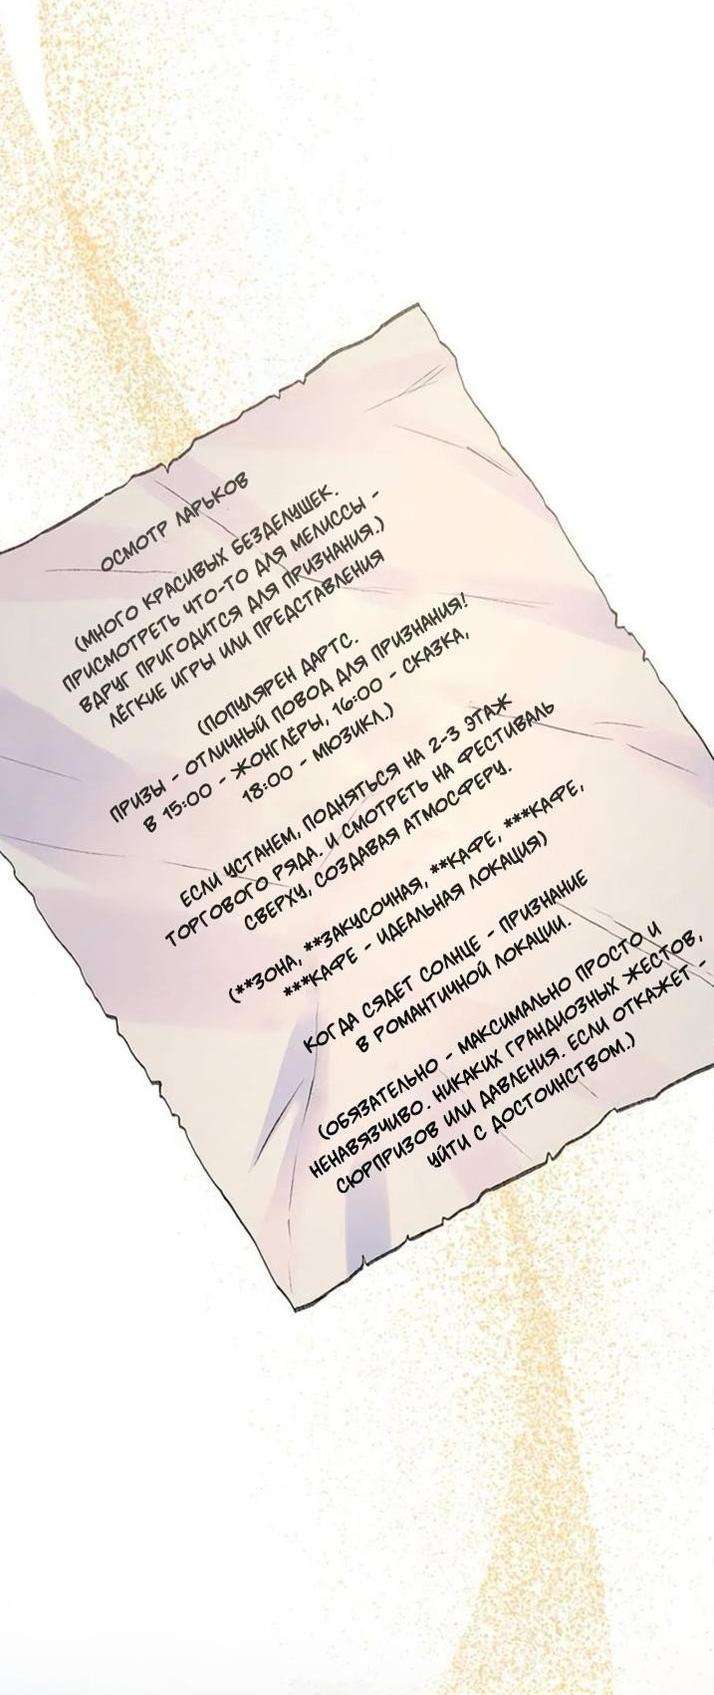 ОСМОТР ЛАРЬКОВ
(МНОГО КРАСИВЫХ БЕЗДЕЛУШЕК.
ПРИСМОТРЕТЬ ЧТО-ТО ДЛЯ МЕЛИССЫ -
ВДРУГ ПРИГОДИТСЯ ДЛЯ ПРИЗНАНИЯ.)
ЛЁГКИЕ ИГРЫ ИЛИ ПРЕДСТАВЛЕНИЯ
(ПОПУЛЯРЕН ДАРТС.
ПРИЗЫ - ОТЛИЧНЫЙ ПОВОД ДЛЯ ПРИЗНАНИЯ!
В 15:00 - ЖОНГЛЁРЫ, 16:00 - СКАЗКА,
18:00 - МЮЗИКЛ.)
ЕСЛИ УСТАНЕМ, ПОДНЯТЬСЯ НА 2-3 ЭТАЖ
ТОРГОВОГО РЯДА. И СМОТРЕТЬ НА ФЕСТИВАЛЬ
СВЕРХУ, СОЗДАВАЯ АТМОСФЕРУ.
(**ЗОНА, **ЗАКУСОЧНАЯ, **КАФЕ, ***КАФЕ,
***КАФЕ - ИДЕАЛЬНАЯ ЛОКАЦИЯ)
КОГДА СЯДЕТ СОЛНЦЕ - ПРИЗНАНИЕ
В РОМАНТИЧНОЙ ЛОКАЦИИ.
(ОБЯЗАТЕЛЬНО - МАКСИМАЛЬНО ПРОСТО И
НЕНАВЯЗЧИВО. НИКАКИХ ГРАНДИОЗНЫХ ЖЕСТОВ,
СЮРПРИЗОВ ИЛИ ДАВЛЕНИЯ. ЕСЛИ ОТКАЖЕТ -
УЙТИ С ДОСТОИНСТВОМ.)